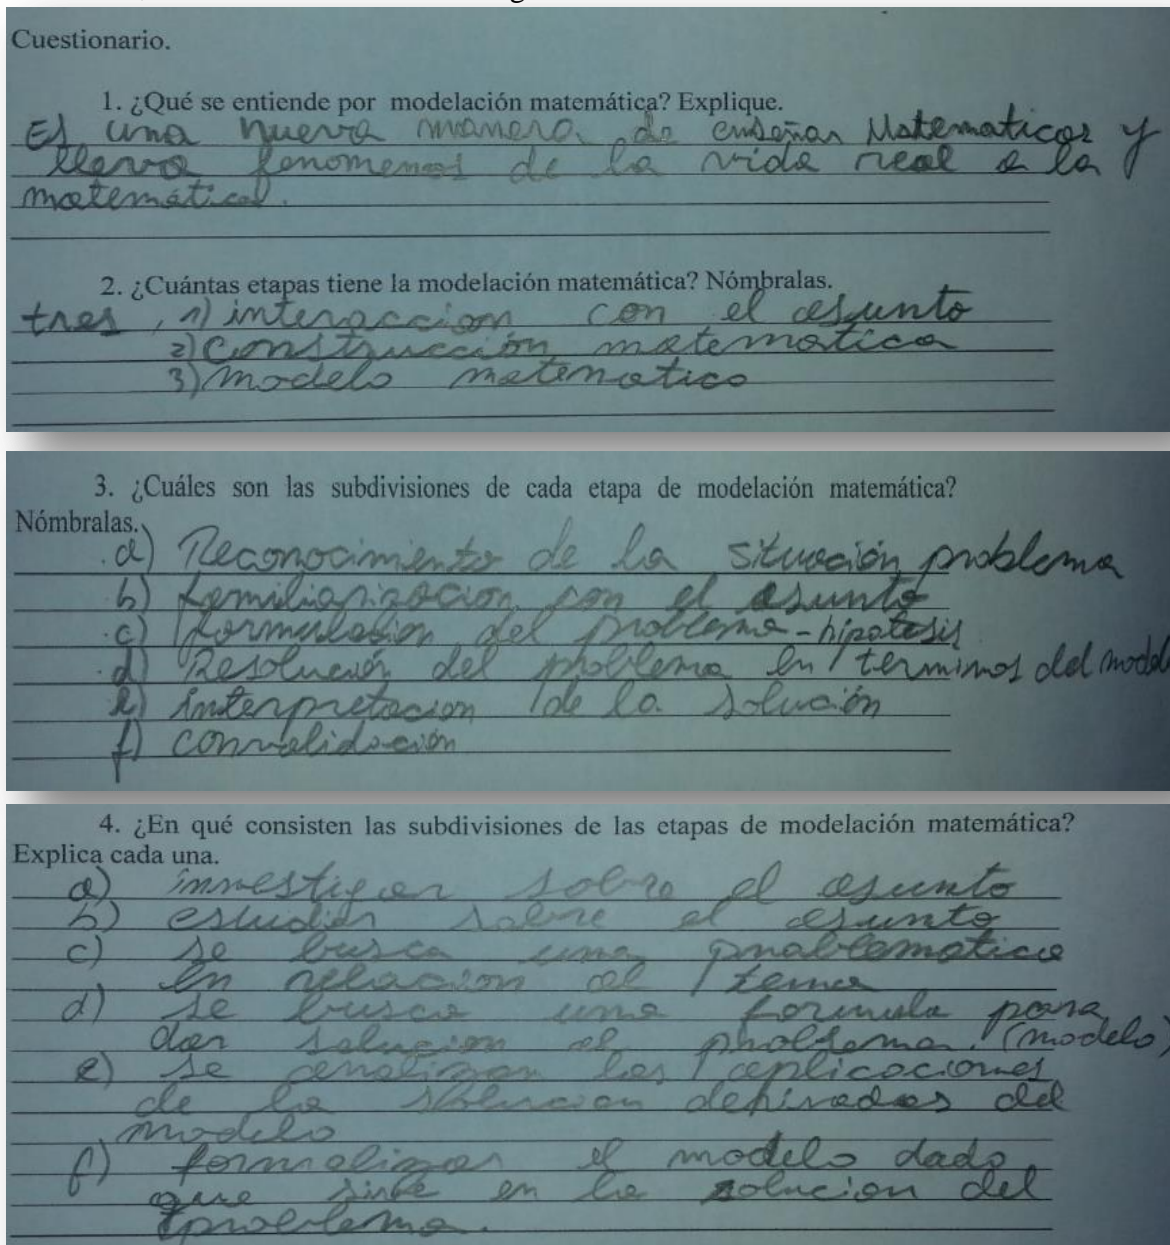 Cuestionario.
1. ¿Qué se entiende por modelación matemática? Explique.
Es una nueva manera de enseñar Matematicas y
lleva fenomenos de la vida real a la
matemática.
2. ¿Cuántas etapas tiene la modelación matemática? Nómbralas.
tres, 1) interaccion con el asunto
2) Construcción matematica
3) modelo matematico
3. ¿Cuáles son las subdivisiones de cada etapa de modelación matemática?
Nómbralas.
a) Reconocimiento de la situación problema
b) familiarizacion con el asunto
c) formulacion del problema - hipotesis
d) Resolución del problema en terminos del modelo
e) interpretacion de la solución
f) convalidación
4. ¿En qué consisten las subdivisiones de las etapas de modelación matemática?
Explica cada una.
a) investigar sobre el asunto
b) estudiar sobre el asunto
c) se busca una problematica
en relacion al tema
d) se busca una formula para
dar solucion al problema. (modelo)
e) se analizan las aplicaciones
de la solucion derivadas del
modelo
f) formalizar el modelo dado
que sirve en la solucion del
problema.